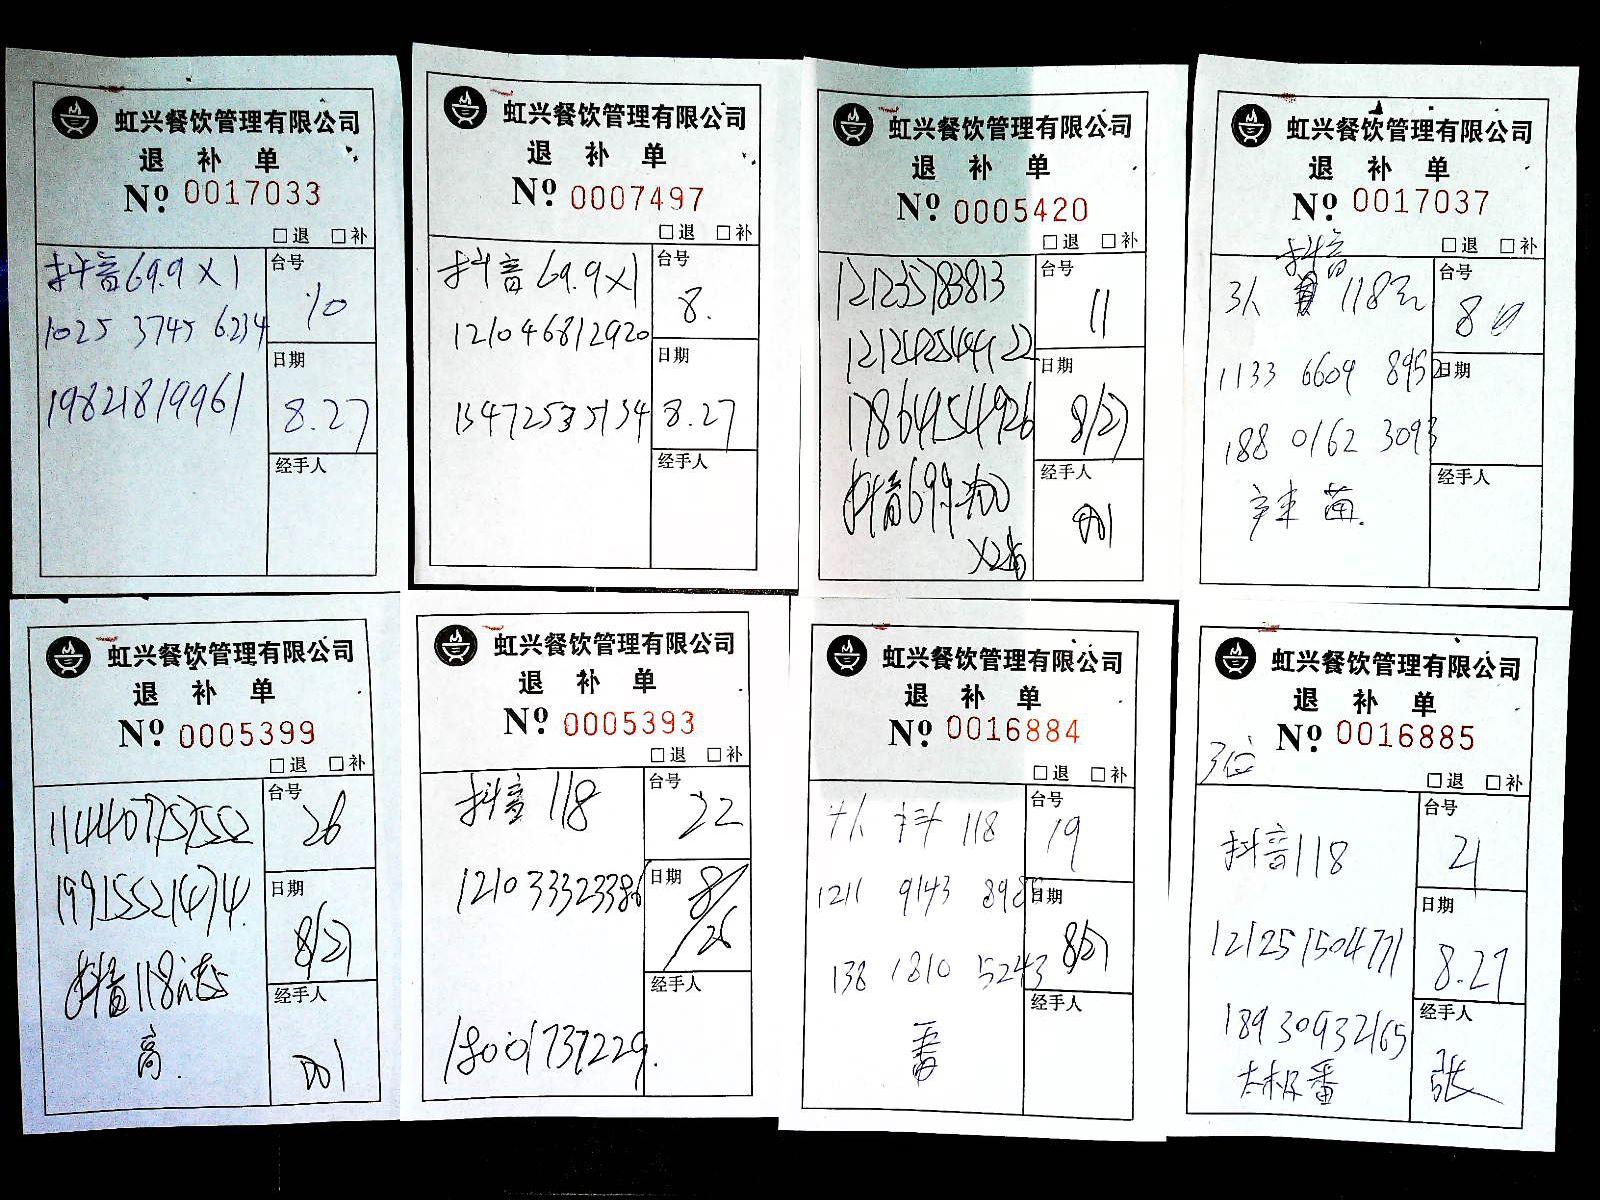 虹兴餐饮管理有限公司
退 补 单
Nº 0017033
□退 □补
抖音69.9×1
1025 3745 6234
19821819961
台号
10
日期
8.27
经手人
虹兴餐饮管理有限公司
退 补 单
Nº 0007497
□退 □补
抖音69.9×1
121046812920
13472535134
台号
8.
日期
8.27
经手人
虹兴餐饮管理有限公司
退 补 单
Nº 0005420
□退 □补
121235783813
17864954926
抖音69.9
台号
11
日期
8/27
经手人
虹兴餐饮管理有限公司
退 补 单
Nº 0017037
□退 □补
抖音
3人 118元
1133 6609 8952
188 0162 3093
台号
8
日期
经手人
虹兴餐饮管理有限公司
退 补 单
Nº 0005399
□退 □补
抖音118
台号
26
日期
8/27
经手人
虹兴餐饮管理有限公司
退 补 单
Nº 0005393
□退 □补
抖音 118
121033323386
18001737229.
台号
22
日期
8/26
经手人
虹兴餐饮管理有限公司
退 补 单
Nº 0016884
□退 □补
抖 118
1211 9143
138 1810 5243
台号
19
日期
8/27
经手人
虹兴餐饮管理有限公司
退 补 单
Nº 0016885
□退 □补
3位
抖音118
121251504771
18930932165
太极番
台号
21
日期
8.27
经手人
张